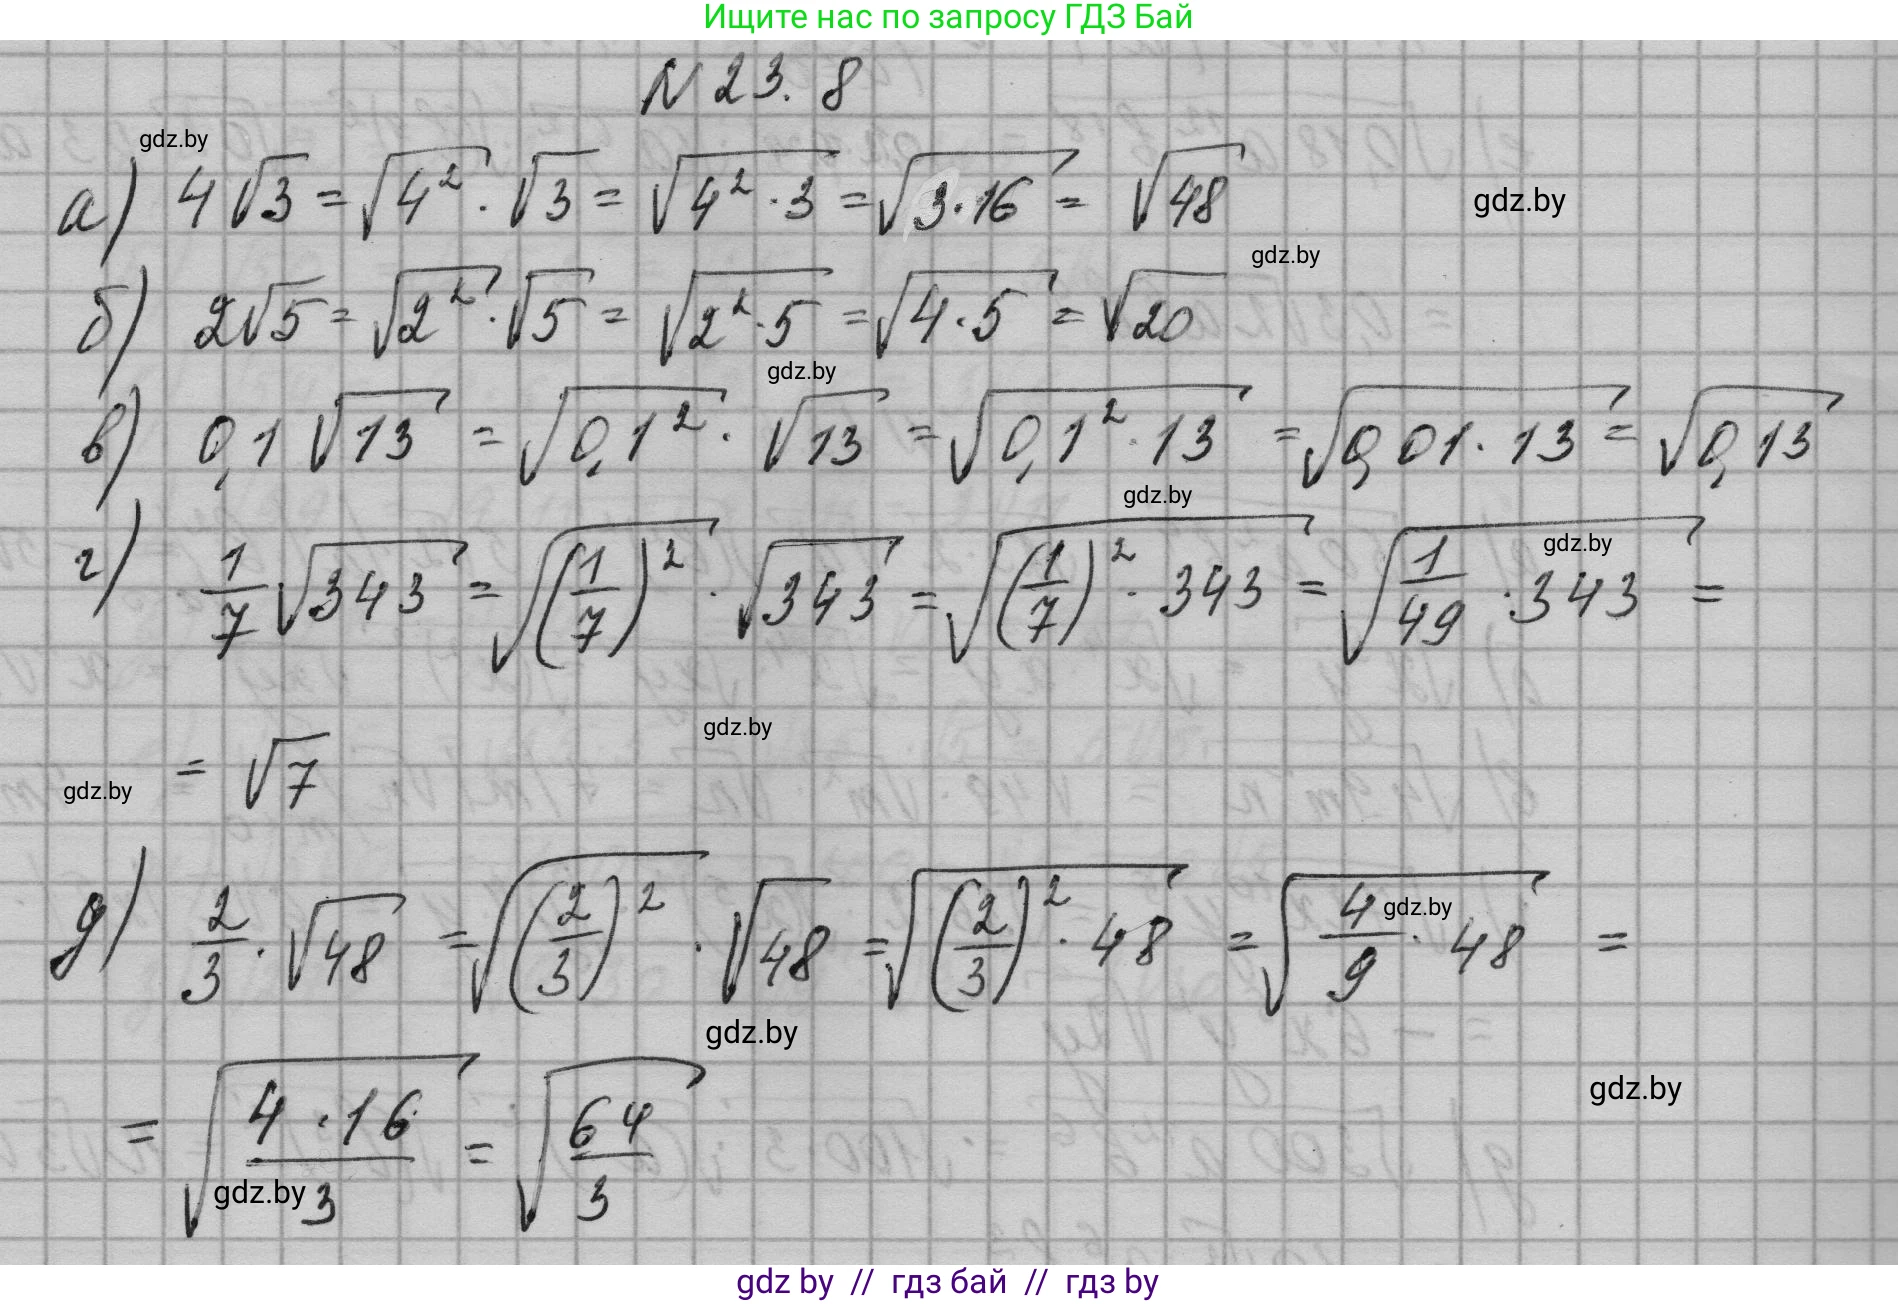 Ищите нас по запросу ГДЗ Бай
N 23. 8
gdz.by
а) 4√3 = √4² · √3 = √(4² · 3) = √(3 · 16) = √48
gdz.by
gdz.by
б) 2√5 = √2² · √5 = √(2² · 5) = √(4 · 5) = √20
gdz.by
в) 0,1 √13 = √0,1² · √13 = √(0,1² · 13) = √(0,01 · 13) = √0,13
gdz.by
gdz.by
г) 1/7 √343 = √(1/7)² · √343 = √((1/7)² · 343) = √(1/49 · 343) =
gdz.by
= √7
gdz.by
д) 2/3 · √48 = √(2/3)² · √48 = √((2/3)² · 48) = √(4/9 · 48) =
gdz.by
gdz.by
gdz.by
= √(4 · 16/3) = √(64/3)
gdz.by
gdz by // гдз бай // гдз by